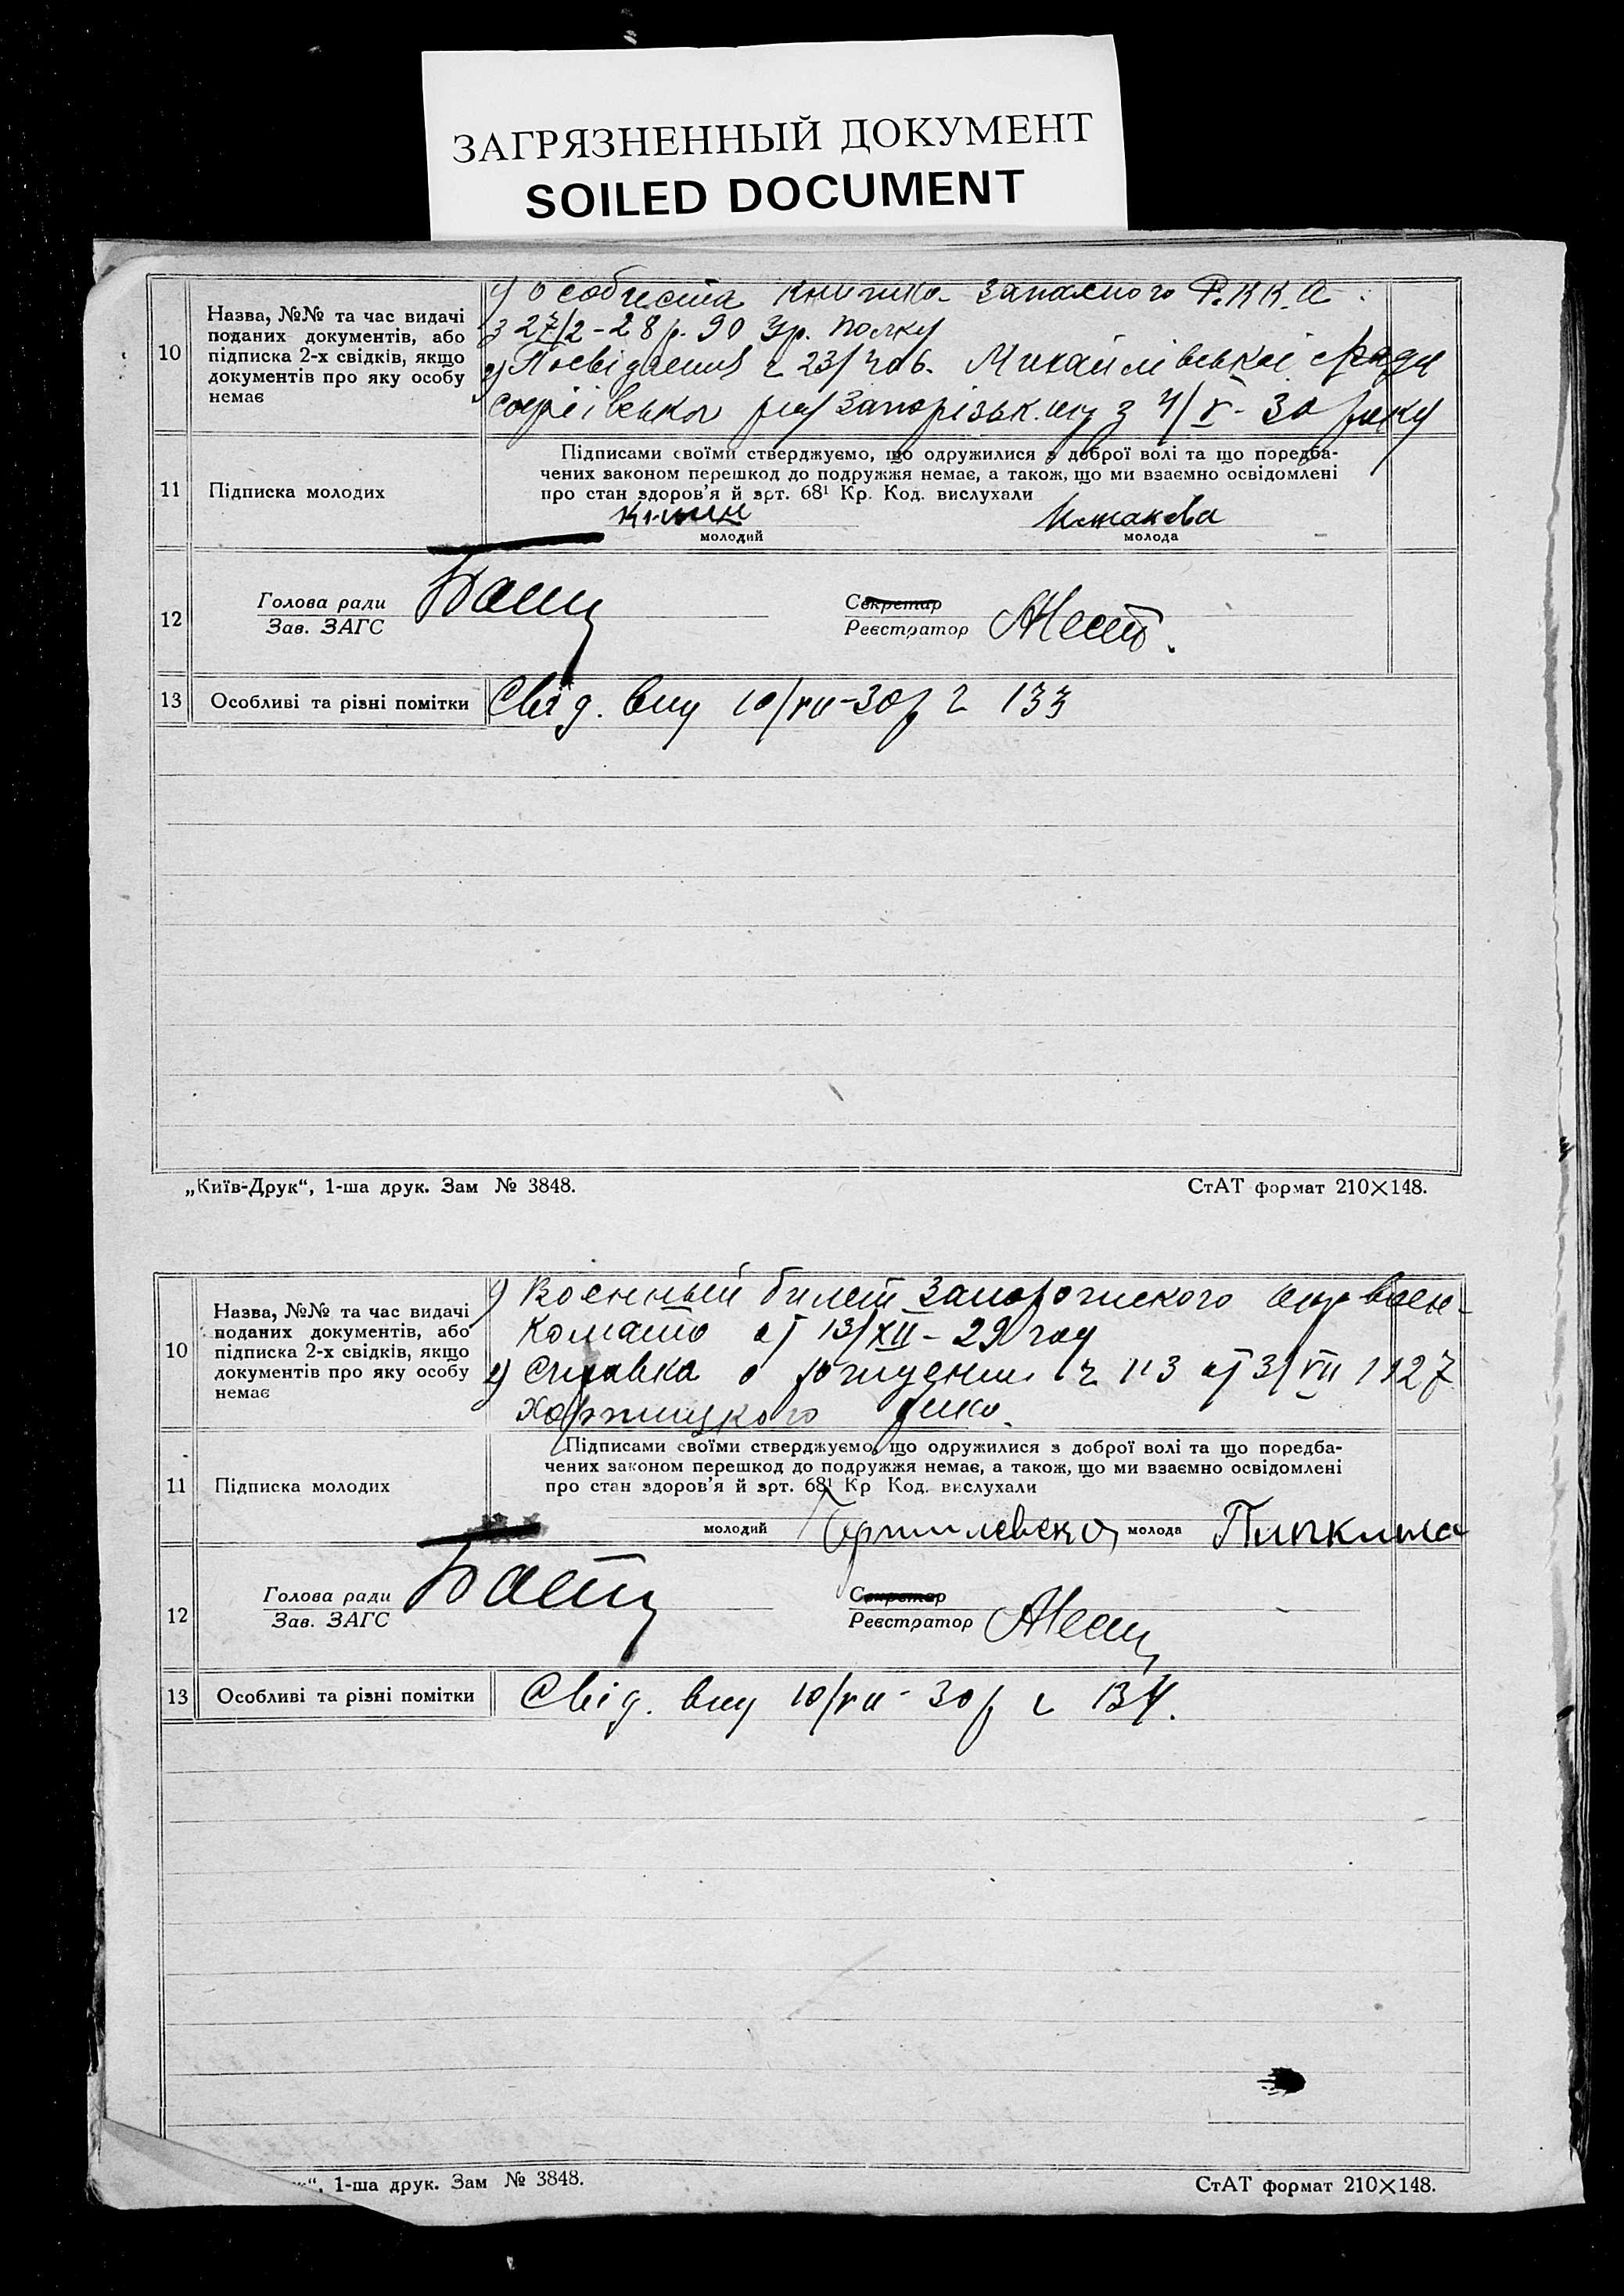 ЗАГРЯЗНЕННЫЙ ДОКУМЕНТ
SOILED DOCUMENT
10
Назва, №№ та час видачі
поданих документів, або
підписка 2-х свідків, якщо
документів про яку особу
немає
1) Особиста книжка запасного Р.К.К.А.
з 27/2-28 р. 90 полку
2) Посвідчення ч 23/406. Михайлівської с/ради
Софіївського рай Запорізьк. з 4/V-30 року
11
Підписка молодих
Підписами своїми стверджуємо, що одружилися з доброї волі та що передба-
чених законом перешкод до подружжя немає, а також, що ми взаємно освідомлені
про стан здоров'я й арт. 68¹ Кр. Код. вислухали
молодий
молода
12
Голова ради
Зав. ЗАГС
Секретар
Реєстратор
13
Особливі та різні помітки
Свід. вид 10/VII-30 р ч 133
„Київ-Друк“, 1-ша друк. Зам № 3848.
СтАТ формат 210×148.
10
Назва, №№ та час видачі
поданих документів, або
підписка 2-х свідків, якщо
документів про яку особу
немає
1) Военный билет Запорожского окр воен-
комата от 13/XII-29 год
2) Справка о рождении ч 113 от 3/VII 1927
Хортицкого
11
Підписка молодих
Підписами своїми стверджуємо, що одружилися з доброї волі та що передба-
чених законом перешкод до подружжя немає, а також, що ми взаємно освідомлені
про стан здоров'я й арт. 68¹ Кр Код. вислухали
молодий
молода
12
Голова ради
Зав. ЗАГС
Секретар
Реєстратор
13
Особливі та різні помітки
Свід. вид 10/VII-30 р ч 134.
“, 1-ша друк. Зам № 3848.
СтАТ формат 210×148.